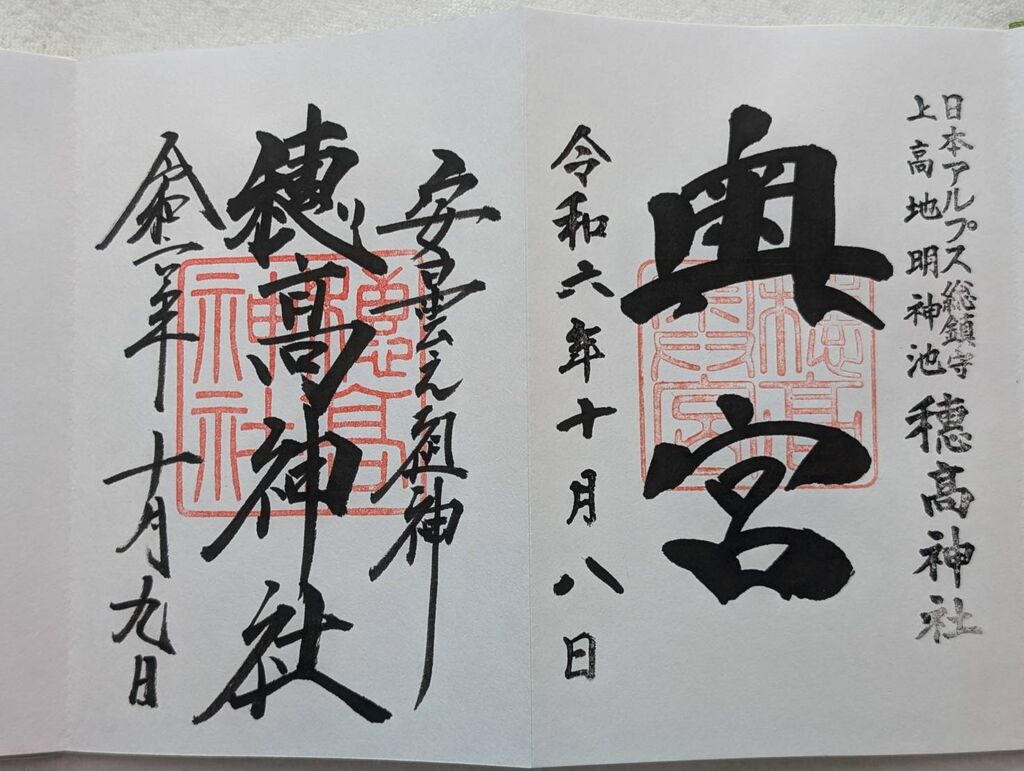 日本アルプス総鎮守
上高地明神池 穂高神社
奥宮
令和六年十月八日
安曇元祖神
穂髙神社
令和六年十月九日
穂高神社